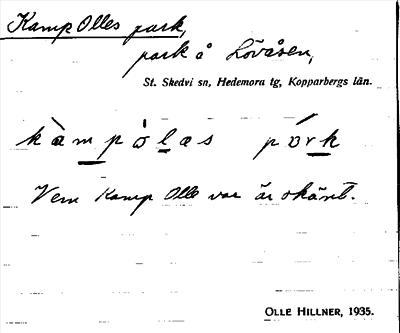 Kamp Olles park,
park å Lövåsen,
St. Skedvi sn, Hedemora tg, Kopparbergs län.
kàmpòlas pórk
Vem Kamp Olle var är okänt.
OLLE HILLNER, 1935.